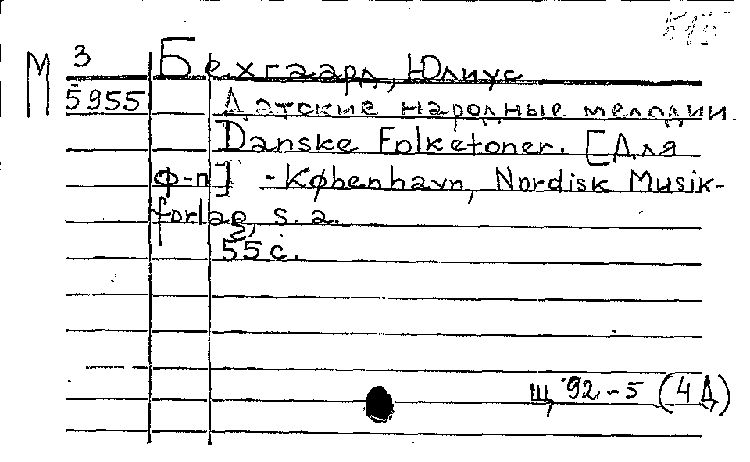 М 3 Бехгаард, Юлиус
5955 Датские народные мелодии.
Danske Folketoner. [Для
ф-п] - København, Nordisk Musik-
forlag, s. a.
55 с.
Щ 92-5 (4Д)